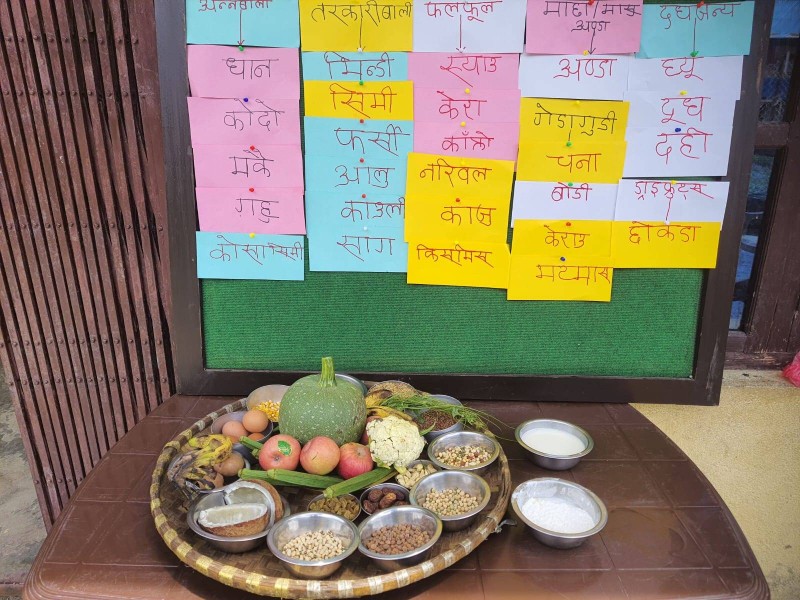 अन्नवाली
धान
कोदो
मकै
गहु
तरकारीबाली
भिन्डी
सिमी
फर्सी
आलु
काउली
साग
फलफूल
स्याउ
केरा
काँक्रो
नरिवल
काजु
किसमिस
अण्डा
अण्डा
गेडागुडी
चना
बोडी
केराउ
भटमास
दुधजन्य
घ्यू
दूध
दही
ड्राइफ्रुट्स
छोकडा